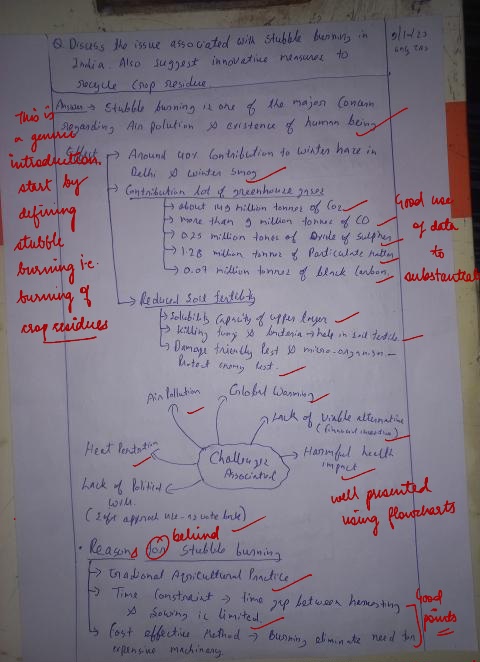 Q. Discuss the issue associated with stubble burning in
India. Also suggest innovative measures to
recycle crop residue.
Answer → Stubble burning is one of the major concern
regarding Air Polution & existence of human being
This is
a generic
introduction.
start by
defining
stubble
burning i.e.
burning of
crop residues
Effect
→ Around 40% contribution to winter haze in
Delhi & winter smog
→ Contribution lot of greenhouse gases
→ about 149 million tonnes of CO2
→ more than 9 million tonnes of CO
→ 0.25 million tones of Oxide of sulpher
→ 1.28 million tonnes of Particulate matter
→ 0.07 million tonnes of black Carbon.
Good use
of data
to
substantiate
→ Reduced Soil fertility
→ Solubility Capacity of upper layer
→ Killing fungi & bacteria → help in soil fertile.
→ Damage friendly Pest & micro-organism —
Protect enemy Pest.
Air Pollution
Global Warming
Lack of viable alternative
(financial incentive)
Harmful health
impact
Heat
Challenges
Associated
Lack of Political
will.
vote bank)
well presented
using flowcharts
behind
• Reasons for Stubble burning
→ Tradional Agricultural Practice
→ Time Constraint → time gap between harvesting
& Sowing is limited
→ Cost effective Method → Burning eliminate need for
expensive machinery.
Good
points